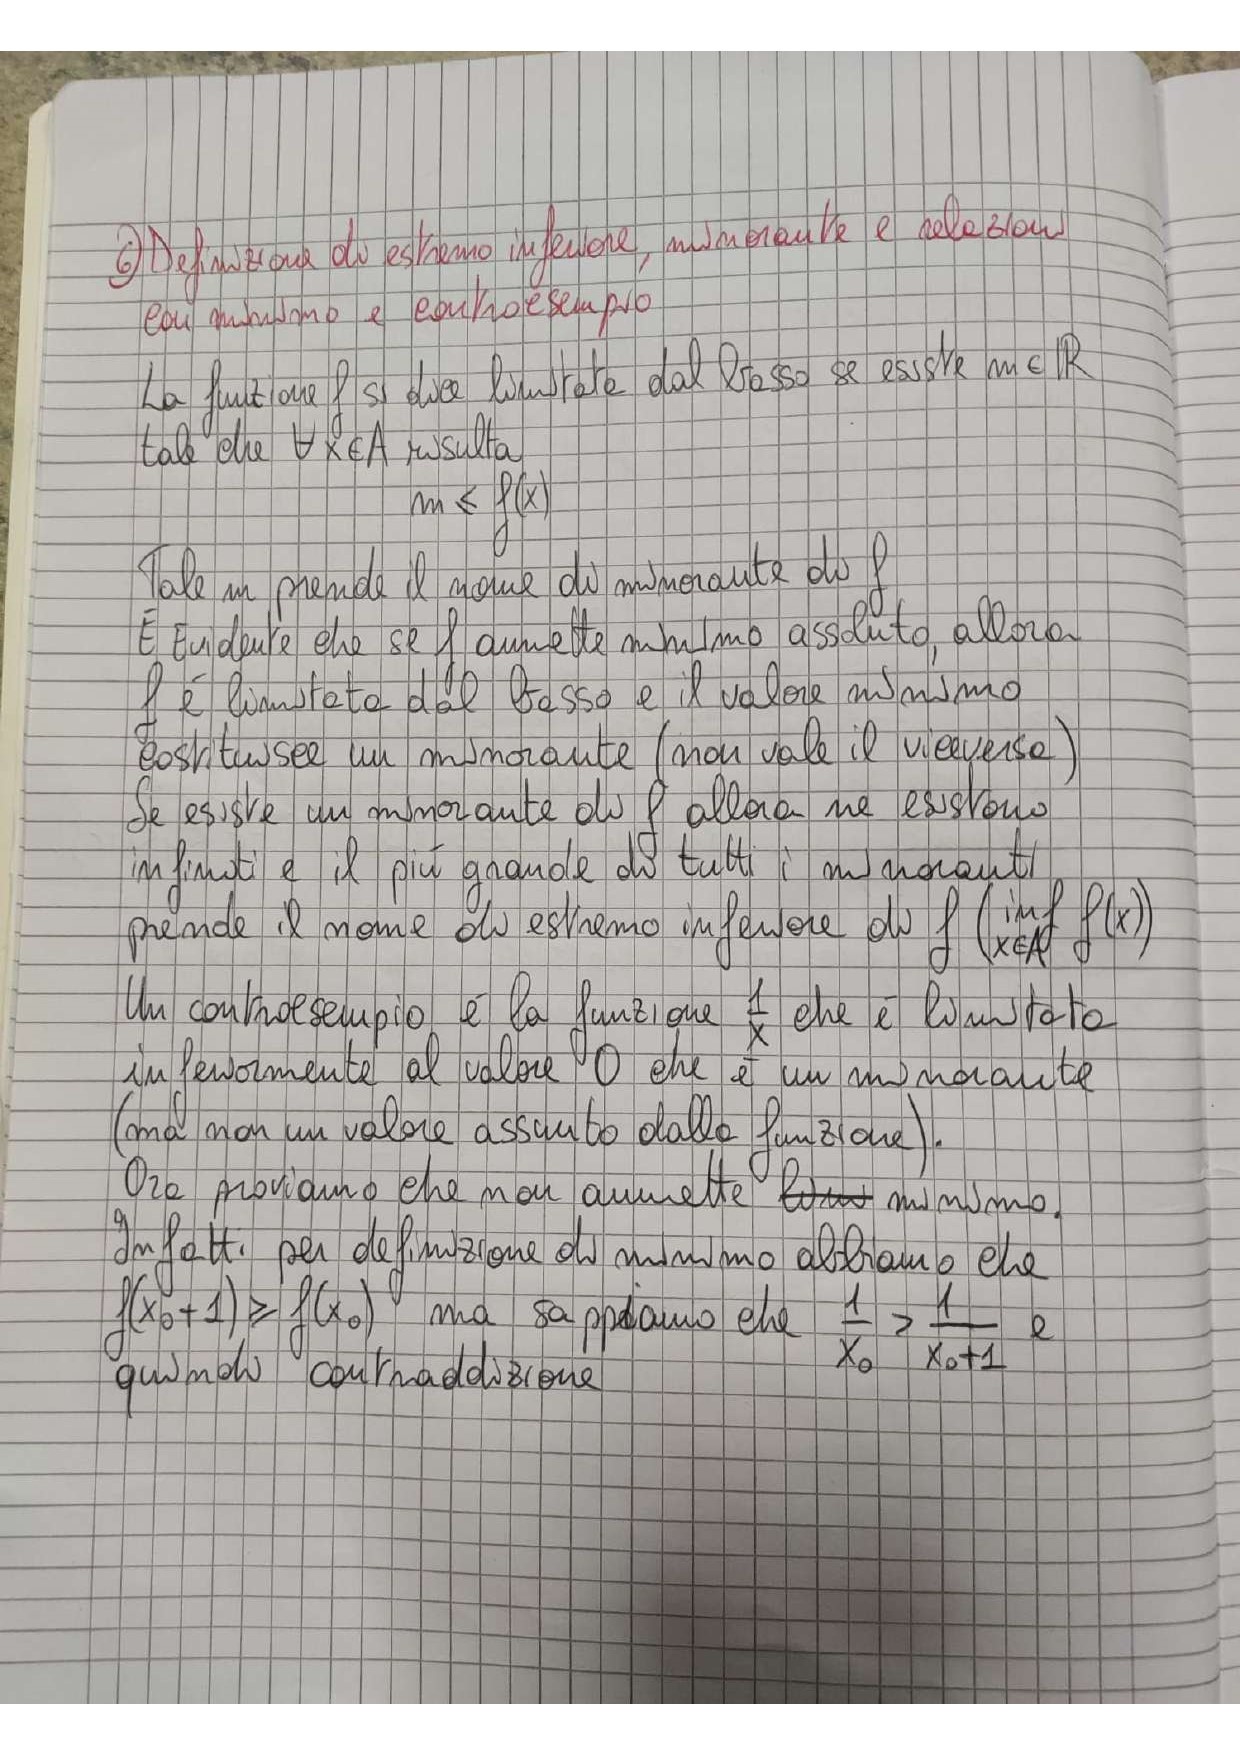 6) Definizione di estremo inferiore, minorante e relazioni
con minimo e controesempio
La funzione f si dice limitata dal basso se esiste m ∈ ℝ
tale che ∀ x ∈ A risulta
m ≤ f(x)
Tale m prende il nome di minorante di f
È Evidente che se f ammette minimo assoluto, allora
f è limitata dal basso e il valore minimo
costituisce un minorante (non vale il viceversa)
Se esiste un minorante di f allora ne esistono
infiniti e il più grande di tutti i minoranti
prende il nome di estremo inferiore di f (inf x∈A f(x))
Un controesempio è la funzione 1/x che è limitata
inferiormente al valore 0 che è un minorante
(ma non un valore assunto dalla funzione).
Ora proviamo che non ammette minimo.
Infatti per definizione di minimo abbiamo che
f(x₀+1) ≥ f(x₀) ma sappiamo che 1/x₀ > 1/(x₀+1) e
quindi contraddizione